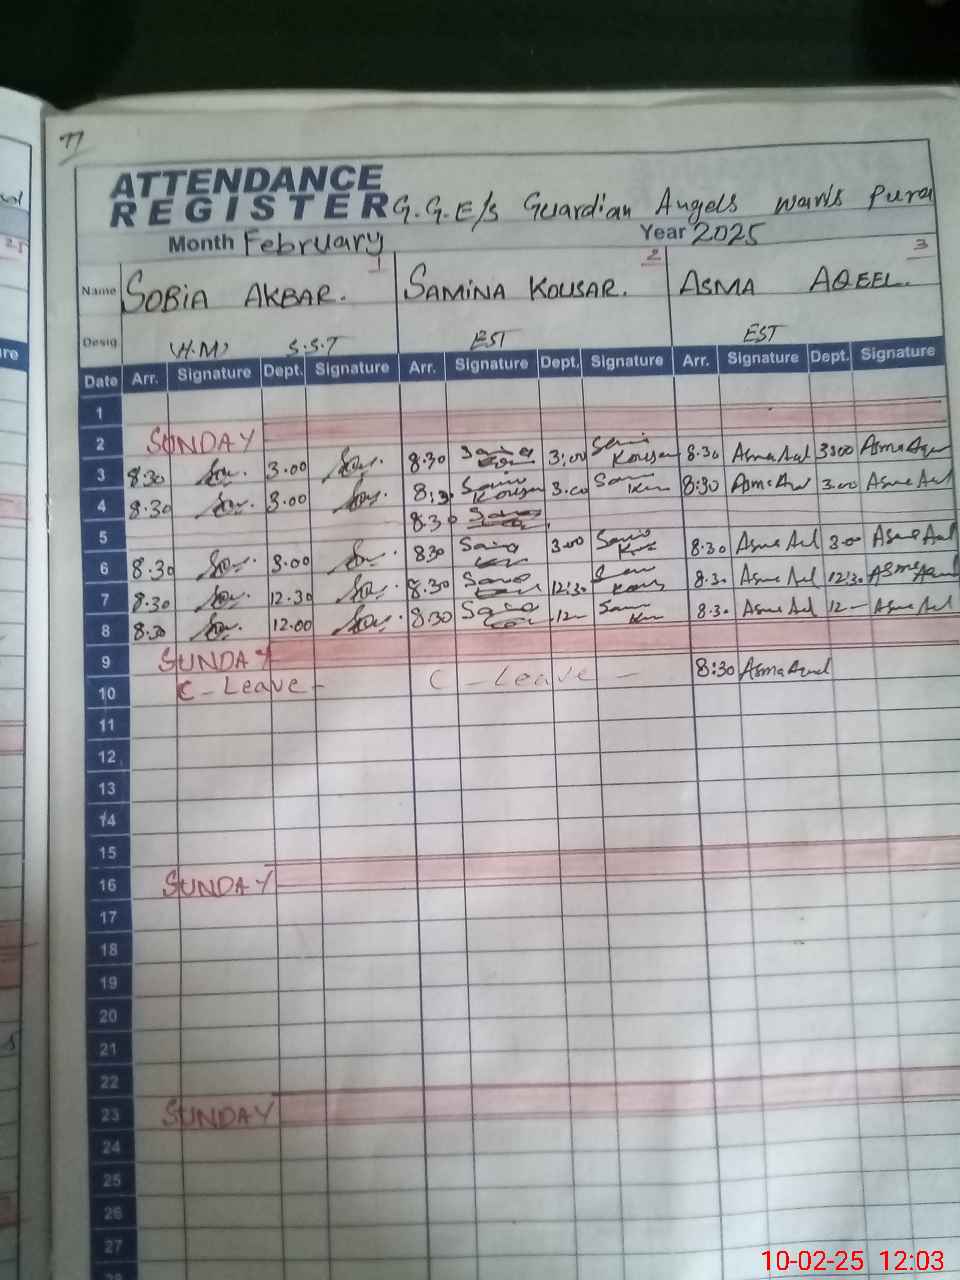 77
ATTENDANCE
REGISTER G.G.E/s Guardian Angels Waris Pura
Month February Year 2025
1 2 3
Name SOBIA AKBAR. SAMINA KOUSAR. ASMA AQEEL.
Desig. H.M S.S.T EST EST
Date Arr. Signature Dept. Signature Arr. Signature Dept. Signature Arr. Signature Dept. Signature
1
2 SUNDAY
3 8.30 3.00 8:30 3:00 Kousar 8.30 Asma 3:00 Asma
4 8.30 3.00 8:30 Kousar 3.00 8:30 Asma 3.00 Asma
5 8.30
6 8.30 3.00 830 3.00 8.30 Asma 3.00 Asma
7 8.30 12.30 8.30 12:30 8.30 Asma 12:30 Asma
8 8.30 12.00 8:30 12- 8.30 Asma 12- Asma
9 SUNDAY
10 C - Leave - C - Leave - 8:30 Asma
11
12
13
14
15
16 SUNDAY
17
18
19
20
21
22
23 SUNDAY
24
25
26
27
28
10-02-25 12:03